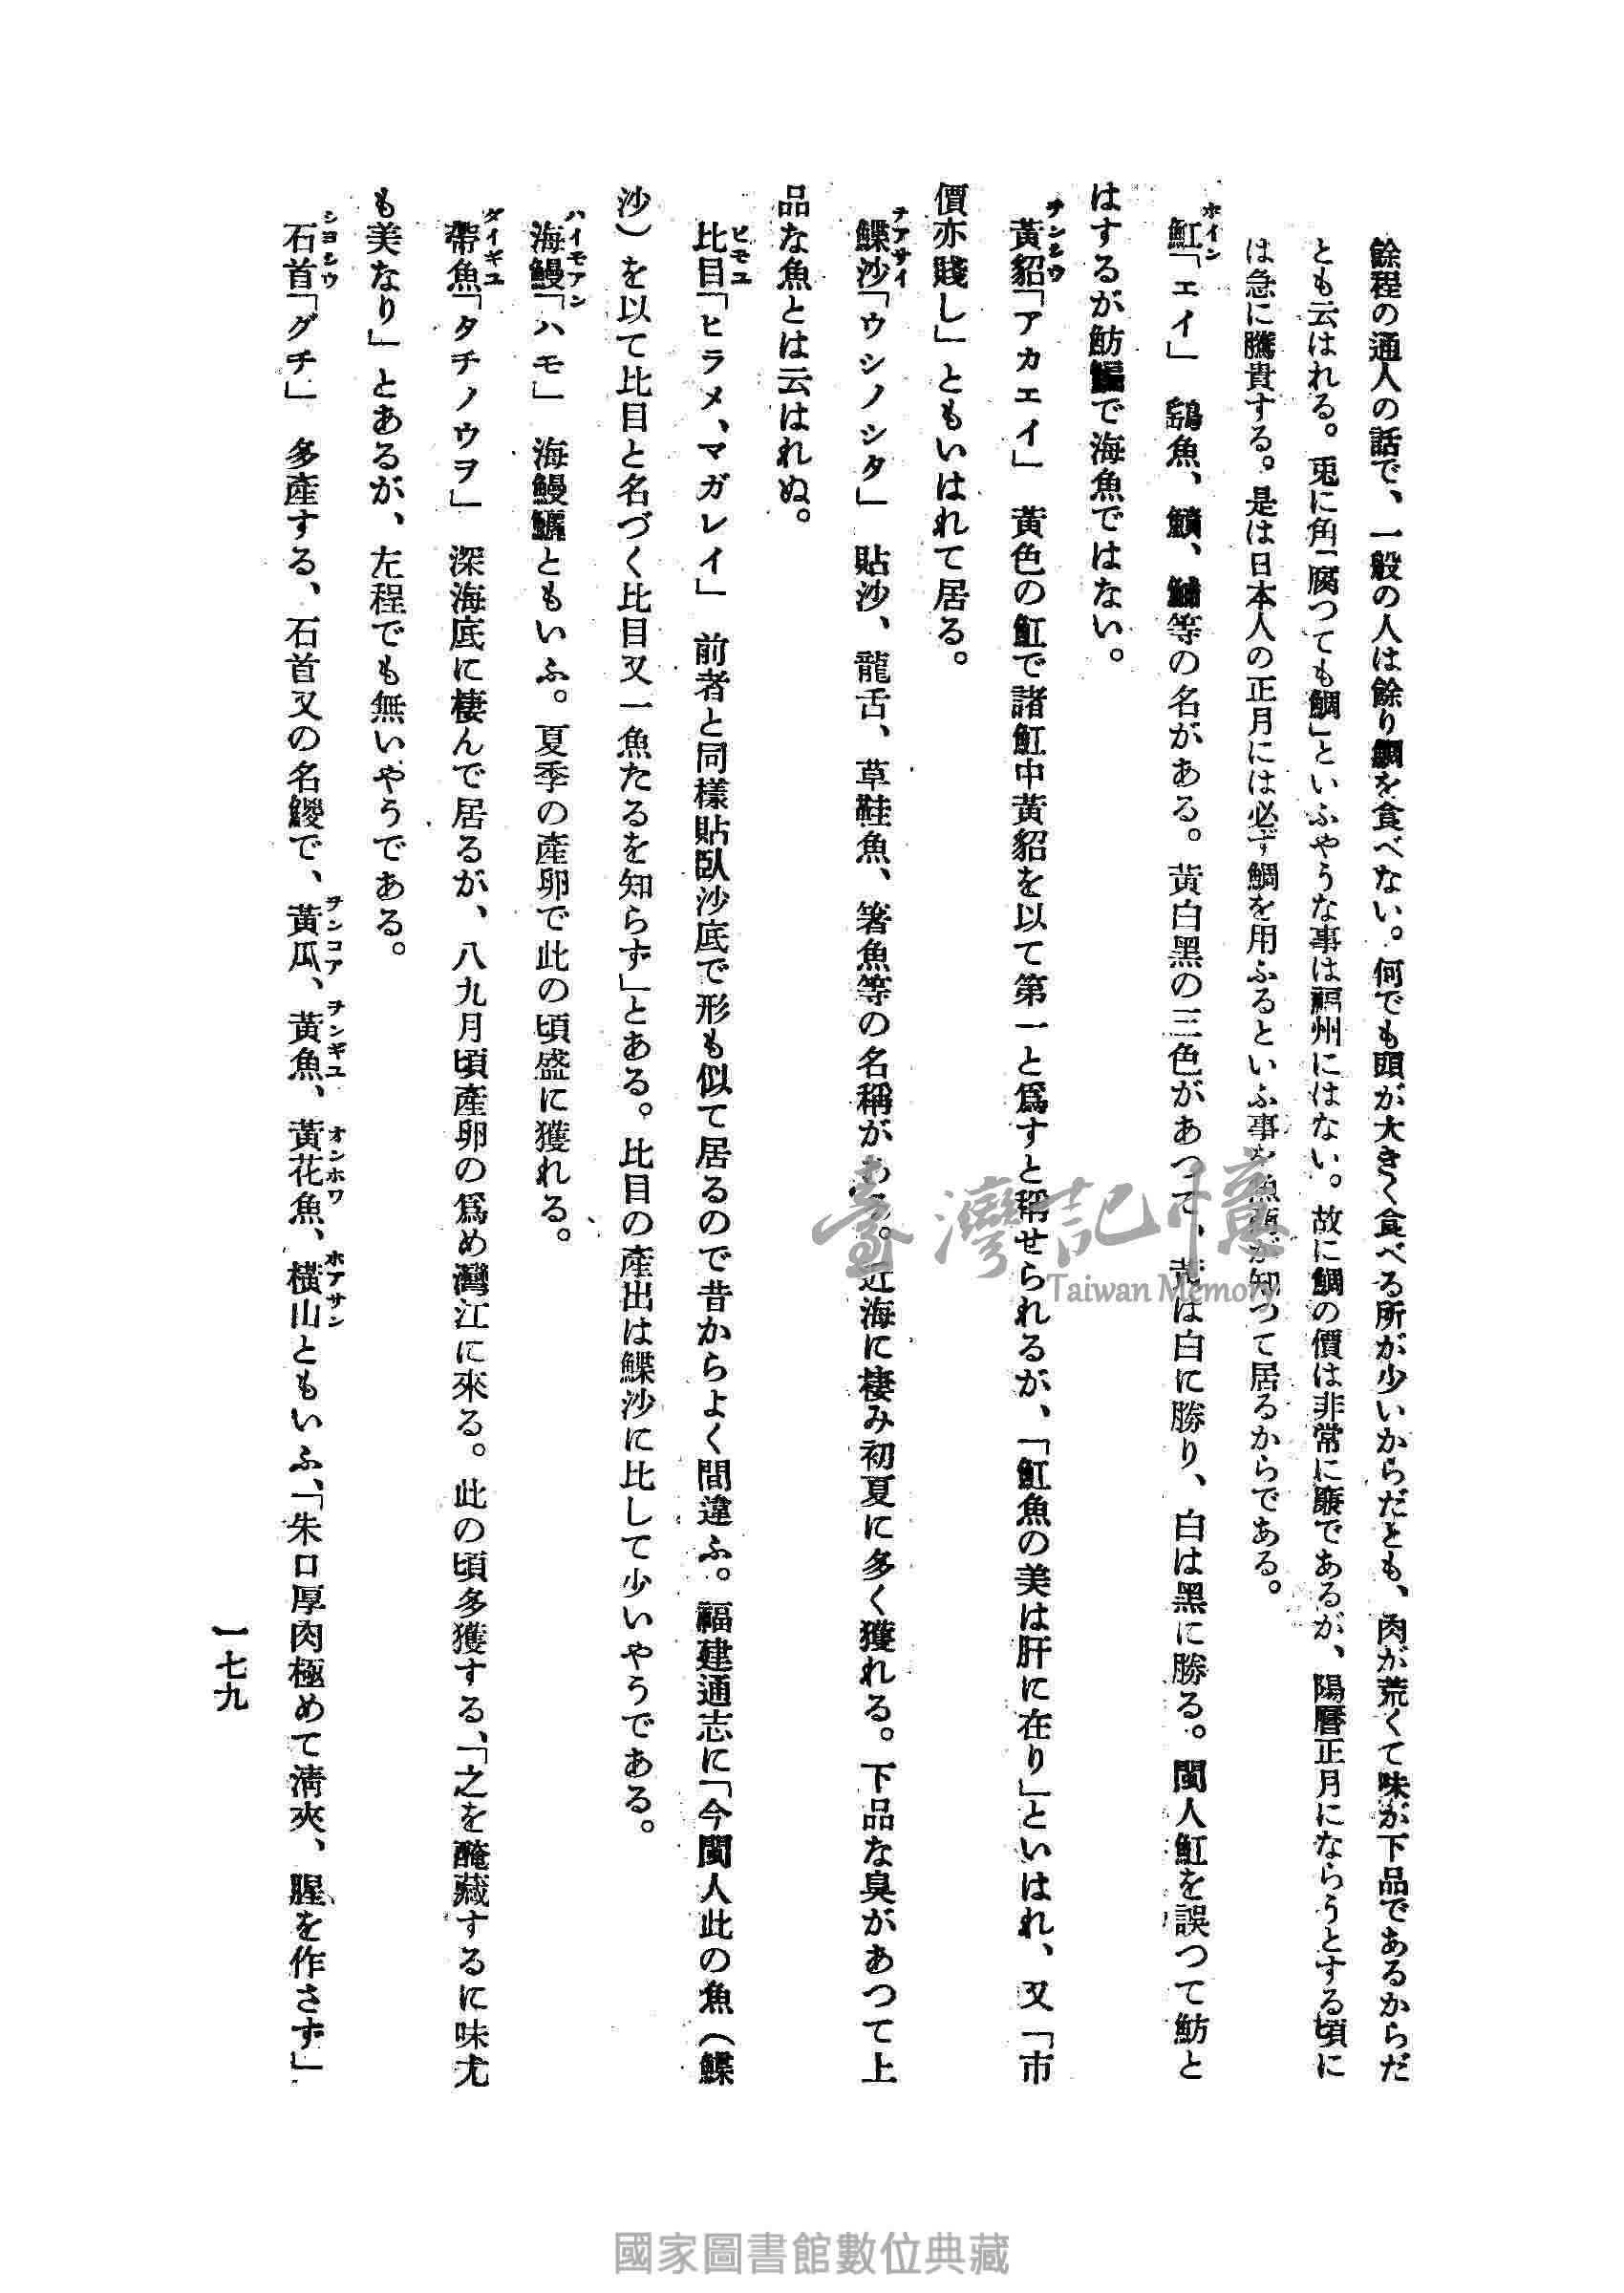 餘程の通人の話で、一般の人は餘り鯛を食べない。何でも頭が大きく食べる所が少いからだとも、肉が荒くて味が下品であるからだ
とも云はれる。兎に角「腐つても鯛」といふやうな事は福州にはない。故に鯛の價は非常に廉であるが、陽曆正月にならうとする頃に
は急に騰貴する。是は日本人の正月には必ず鯛を用ふるといふ事を魚商が知つて居るからである。
魟「エイ」 魚、等の名がある。黄白黑の三色があつて、黄は白に勝り、白は黑に勝る。閩人魟を誤つて魴と
ホイン
はするが魴鯿で海魚ではない。
黃貂「アカエイ」 黃色の魟で諸魟中黃貂を以て第一と爲すと稱せられるが、「魟魚の美は肝に在り」といはれ、又「市
價亦賤し」ともいはれて居る。
鰈沙「ウシノシタ」 貼沙、龍舌、草鞋魚、箸魚等の名稱がある。近海に棲み初夏に多く獲れる。下品な臭があつて上
品な魚とは云はれぬ。
比目「ヒラメ、マガレイ」 前者と同樣貼臥沙底で形も似て居るので昔からよく間違ふ。福建通志に「今閩人此の魚(鰈
ヒモユ
沙)を以て比目と名づく比目又一魚たるを知らず」とある。比目の產出は鰈沙に比して少いやうである。
海鰻「ハモ」 海鰻鱺ともいふ。夏季の產卵で此の頃盛に獲れる。
ハイモアン
帶魚「タチノウヲ」 深海底に棲んで居るが、八九月頃產卵の爲め灣江に來る。此の頃多獲する、「之を醃藏するに味尤
ダイギユ
も美なり」とあるが、左程でも無いやうである。
石首「グチ」 多產する、石首又の名鯼で、黃瓜、黃魚、黃花魚、橫山ともいふ、「朱口厚肉極めて淸爽、腥を作さず」
シヨシウ
一七九
臺灣記憶
Taiwan Memory
國家圖書館數位典藏